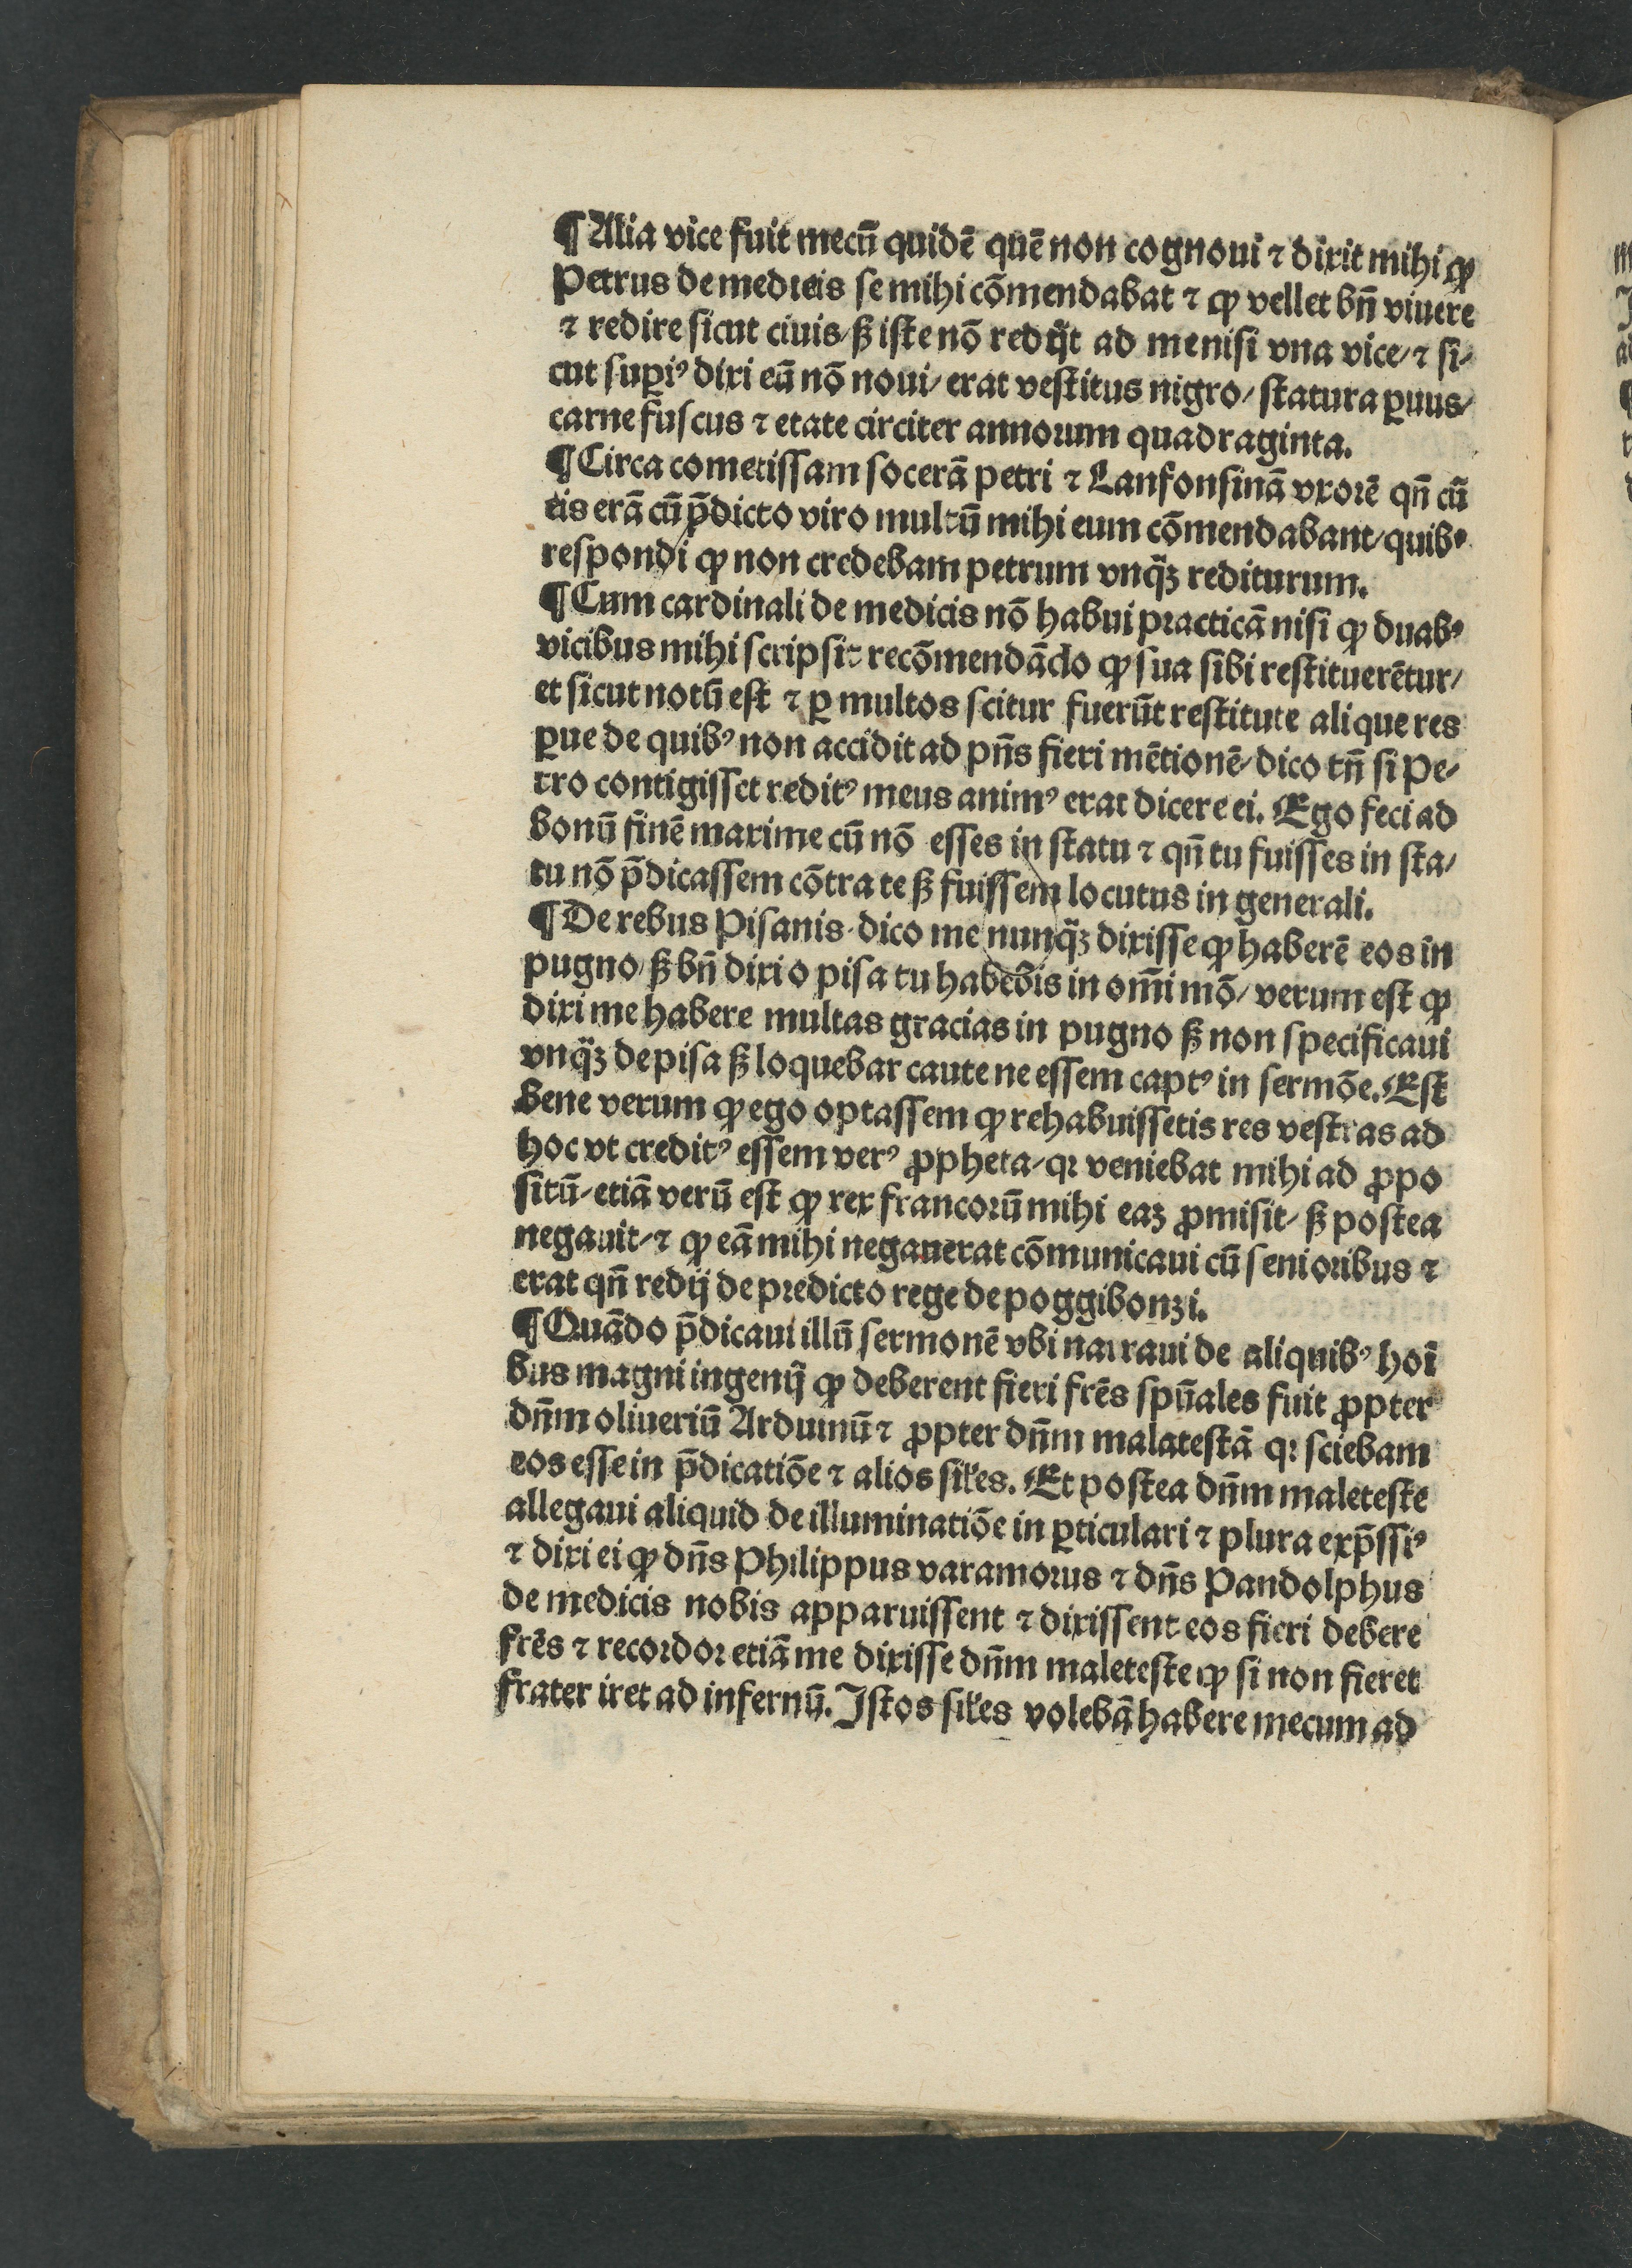 ¶Alia vice fuit mecū quidē quē non cognoui ⁊ dixit mihi ꝙ
Petrus de medicis se mihi cōmendabat ⁊ ꝙ vellet bn̄ viuere
⁊ redire sicut ciuis/ sꝫ iste nō redijt ad me nisi vna vice/ ⁊ si/
cut supiꝰ dixi eū nō noui/ erat vestitus nigro/ statura ꝑuus/
carne fuscus ⁊ etate circiter annorum quadraginta.
¶Circa cometissam socerā petri ⁊ Lanfonsinā vxorē qn̄ cū
eis erā cū p̄dicto viro multū mihi eum cōmendabant/ quibꝰ
respondi ꝙ non credebam petrum vnq̄ꝫ rediturum.
¶Cum cardinali de medicis nō habui practicā nisi ꝙ duabꝰ
vicibus mihi scripsit recōmendādo ꝙ sua sibi restituerētur/
et sicut notū est ⁊ ꝑ multos scitur fuerūt restitute alique res
ꝑue de quibꝰ non accidit ad pn̄s fieri mētionē/ dico tn̄ si Pe/
tro contigisset reditꝰ meus animꝰ erat dicere ei. Ego feci ad
bonū finē maxime cū nō esses in statu ⁊ qn̄ tu fuisses in sta/
tu nō p̄dicassem cōtra te sꝫ fuissem locutus in generali.
¶De rebus Pisanis dico me nunq̄ꝫ dixisse ꝙ haberē eos in
pugno/ sꝫ bn̄ dixi o pisa tu habebis in om̄i mō/ verum est ꝙ
dixi me habere multas gracias in pugno sꝫ non specificaui
vnq̄ꝫ de pisa sꝫ loquebar caute ne essem captꝰ in sermōe. Est
bene verum ꝙ ego optassem ꝙ rehabuissetis res vestras ad
hoc vt creditꝰ essem verꝰ ꝓpheta/ qꝛ veniebat mihi ad ꝓpo
situ̅/ etiā verū est ꝙ rex francorū mihi eaꝫ ꝓmisit/ sꝫ postea
negauit/ ⁊ ꝙ eā mihi negauerat cōmunicaui cū senioribus ⁊
erat qn̄ redij de predicto rege de poggibonzi.
¶Quādo p̄dicaui illū sermonē vbi narraui de aliquibꝰ hoı̄
bus magni ingenij ꝙ deberent fieri frēs spūales fuit ꝓpter
dn̄m oliueriū Arduinū ⁊ ꝓpter dn̄m malatestā qꝛ sciebam
eos esse in p̄dicatiōe ⁊ alios siłes. Et postea dn̄m maleteste
allegaui aliquid de illuminatiōe in ꝑticulari ⁊ plura exp̄ssiꝰ
⁊ dixi ei ꝙ dn̄s Philippus varamorus ⁊ dn̄s Pandolphus
de medicis nobis apparuissent ⁊ dixissent eos fieri debere
frēs ⁊ recordor etiā me dixisse dn̄m maleteste ꝙ si non fieret
frater iret ad infernū. Istos siłes volebā habere mecum ad